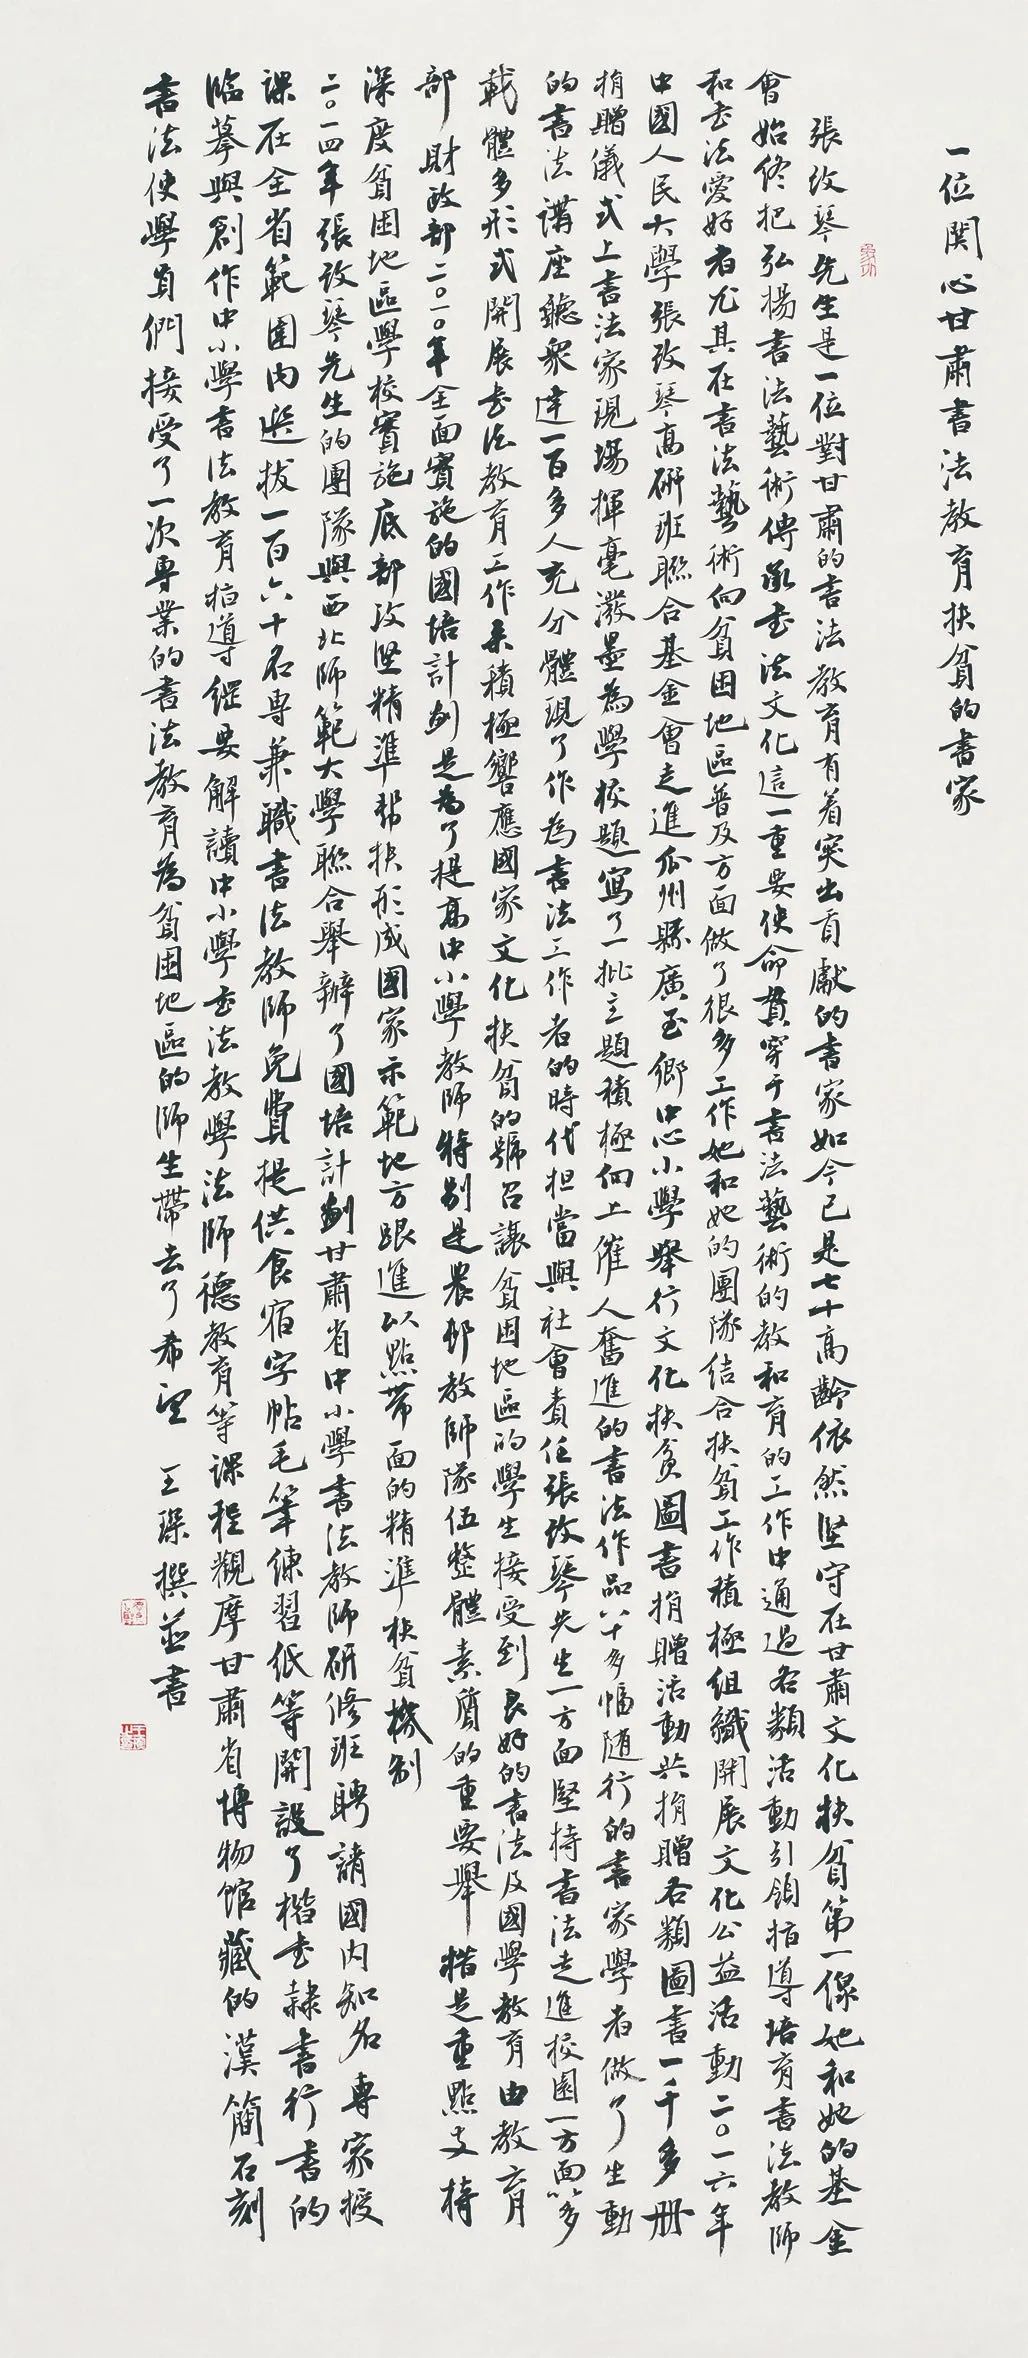 一位関心甘肅書法教育扶貧的書家
張改琴先生是一位對甘肅的書法教育有着突出貢獻的書家如今已是七十高齡依然堅守在甘肅文化扶貧第一線她和她的基金
會始終把弘揚書法藝術傳承書法文化這一重要使命貫穿于書法藝術的教和育的工作中通過各類活動引領指導培育書法教師
和書法愛好者尤其在書法藝術向貧困地區普及方面做了很多工作她和她的團隊結合扶貧工作積極組織開展文化公益活動二〇一六年
中國人民大學張改琴高研班聯合基金會走進瓜州縣廣至鄉中心小學舉行文化扶貧圖書捐贈活動共捐贈各類圖書一千多册
捐贈儀式上書法家現場揮毫潑墨為學校題寫了一批主題積極向上催人奮進的書法作品八十多幅随行的書家學者做了生動
的書法講座聽衆達一百多人充分體現了作為書法工作者的時代担當與社會責任張改琴先生一方面堅持書法走進校園一方面以多
載體多形式開展書法教育工作来積極響應國家文化扶貧的號召讓貧困地區的學生接受到良好的書法及國學教育由教育
部財政部二〇一〇年全面實施的國培計劃是為了提高中小學教師特别是農邨教師隊伍整體素質的重要舉措是重點支持
深度貧困地區學校實施底部攻堅精準幫扶形成國家示範地方跟進以點帶面的精準扶貧機制
二〇一四年張改琴先生的團隊與西北師範大學聯合舉辦了國培計劃甘肅省中小學書法教師研修班聘請國内知名專家授
課在全省範圍内選拔一百六十名専兼職書法教師免費提供食宿字帖毛筆練習紙等開設了楷書隷書行書的
臨摹與創作中小學書法教育指導綱要解讀中小學書法教學法師德教育等課程觀摩甘肅省博物館藏的漢簡石刻
書法使學員們接受了一次専業的書法教育為貧困地區的師生帶去了希望 王琛撰並書